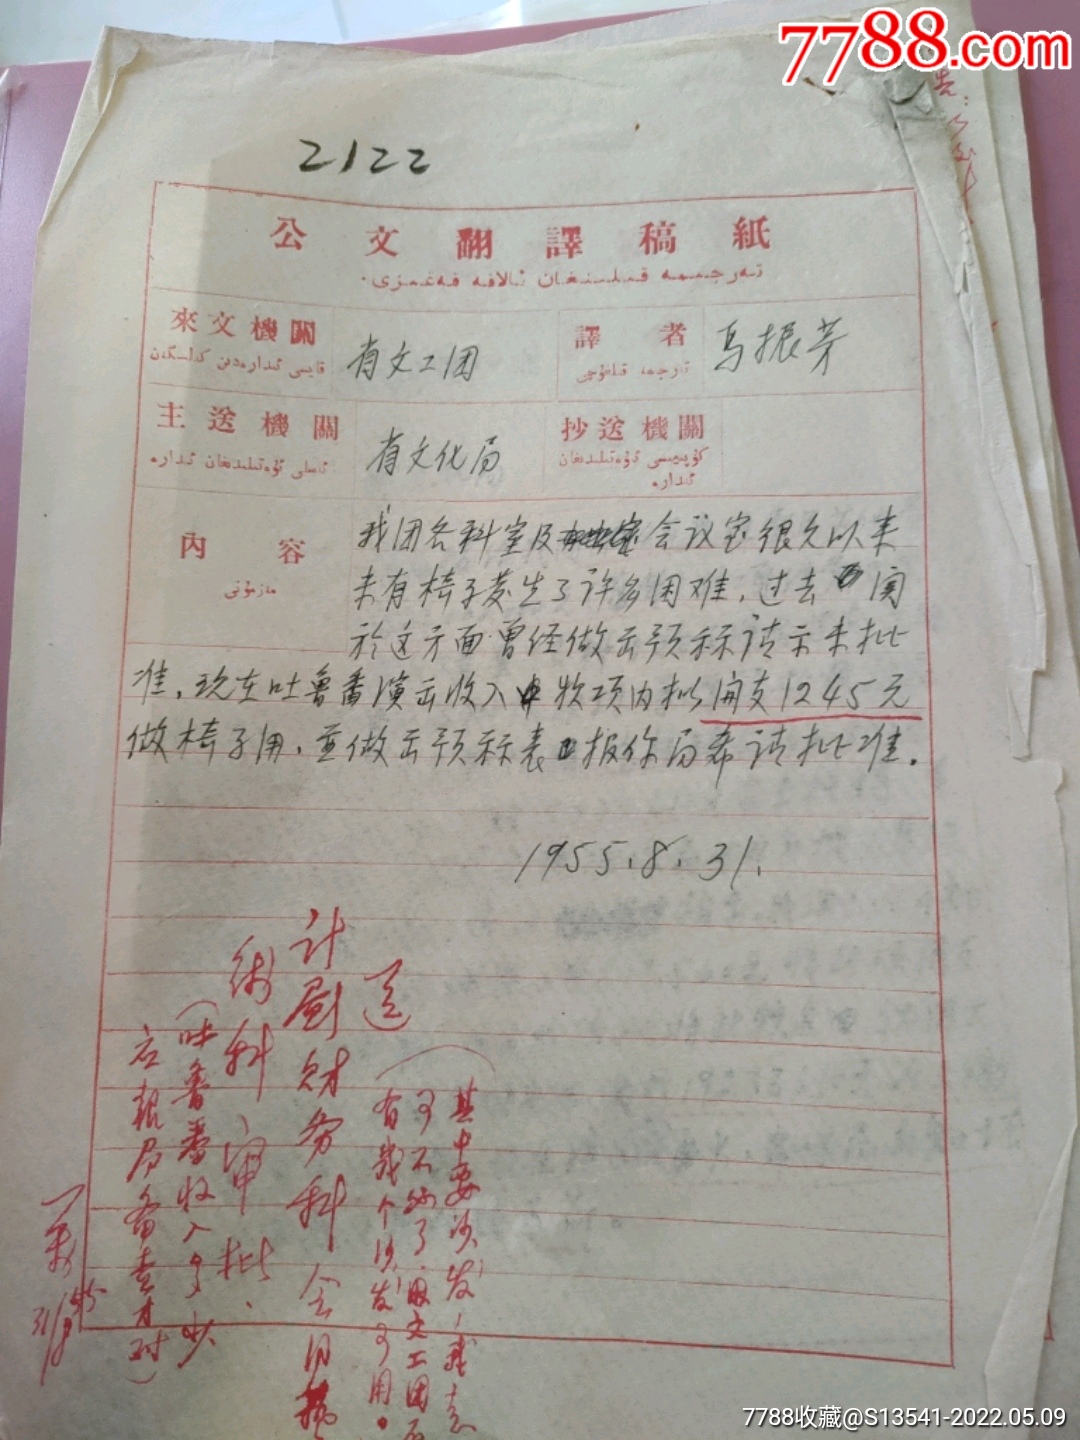 7788.com
2122
公文翻譯稿紙
تەرجىمە قىلىنغان ئالاقە قەغىزى
來文機關
省文工团
譯者
马振芳
قايسى ئىدارەدىن كەلگەن
تەرجىمە قىلغۇچى
主送機關
省文化局
抄送機關
ئەسلى ئەۋەتىلىدىغان ئىدارە
كۆپىيىسى ئەۋەتىلىدىغان ئىدارە
內容
مەزمۇنى
我团各科室及会议室很久以来
未有椅子发生了许多困难，过去 関
於这方面曾经做出预标请示未批
准，现在吐鲁番演出收入 款项内拟開支1245元
做椅子用，並做出预标表 报你局希请批准。
1955.8.31.
送
计劃财务科会同藝
術科审批、
(吐鲁番收入多少
应报局备查才对)
(其中要沙发，我意
可不必了，因文工团
有幾个沙发可用。
31/8
7788收藏@S13541-2022.05.09